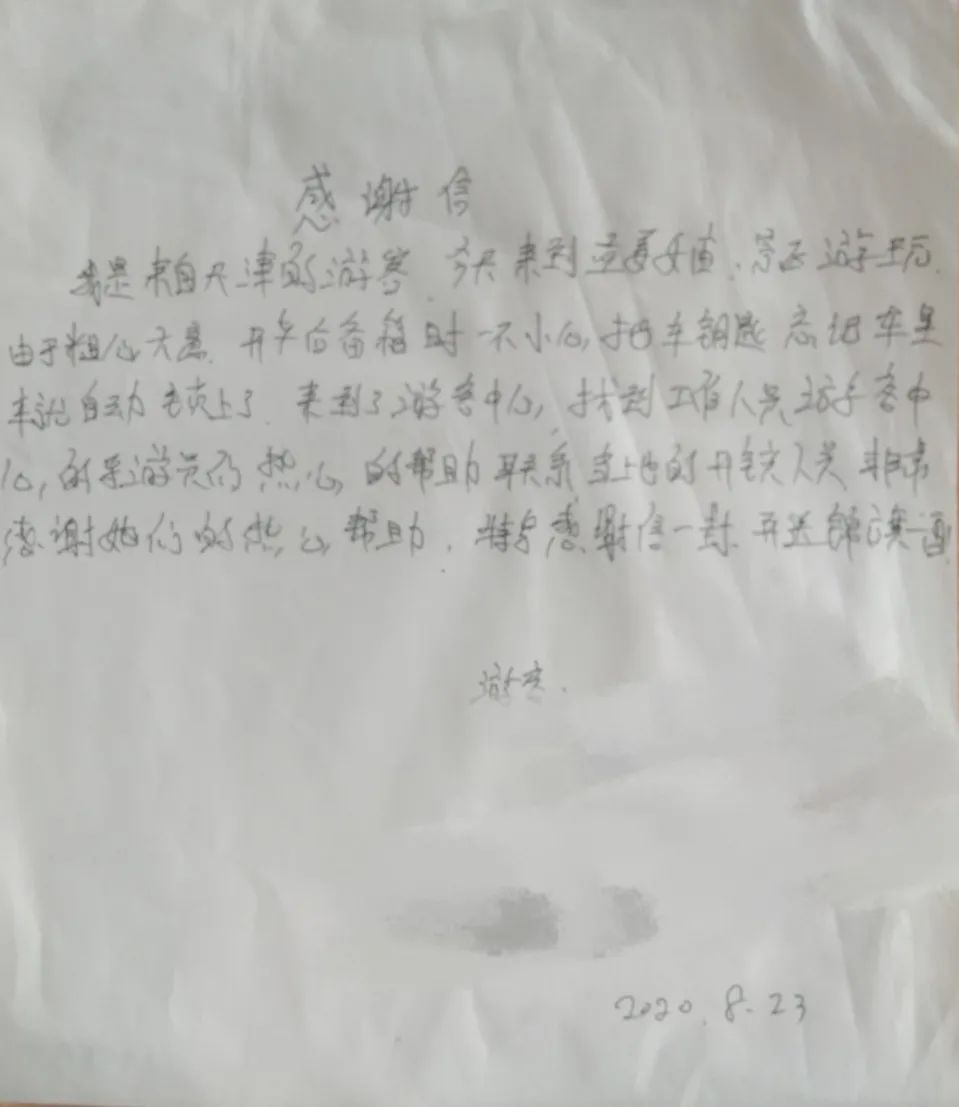 感谢信
我是来自天津的游客 今天来到 游玩
由于粗心大意 开车后备箱时一不小心,把车钥匙忘记车里
车 自动锁上了 来到了游客中心,找到工作人员游客中
心,的 热心的帮助联系当地的开锁人员 非常
感谢她们的热心帮助.特写感谢信一封.再送锦旗一面
游客.
2020.8.23